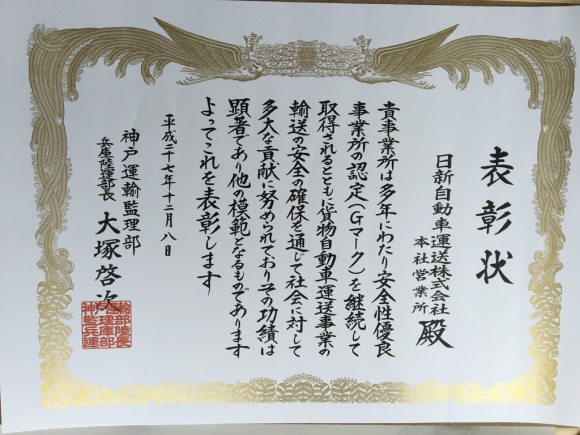 表彰状
日新自動車運送株式会社
本社営業所
殿
貴事業所は多年にわたり安全性優良
事業所の認定(Gマーク)を継続して
取得されるとともに貨物自動車運送事業の
輸送の安全の確保を通じて社会に対して
多大な貢献に努められておりその功績は
顕著であり他の模範となるものであります
よってこれを表彰します
平成二十七年十二月八日
神戸運輸監理部
兵庫陸運部長
大塚啓次